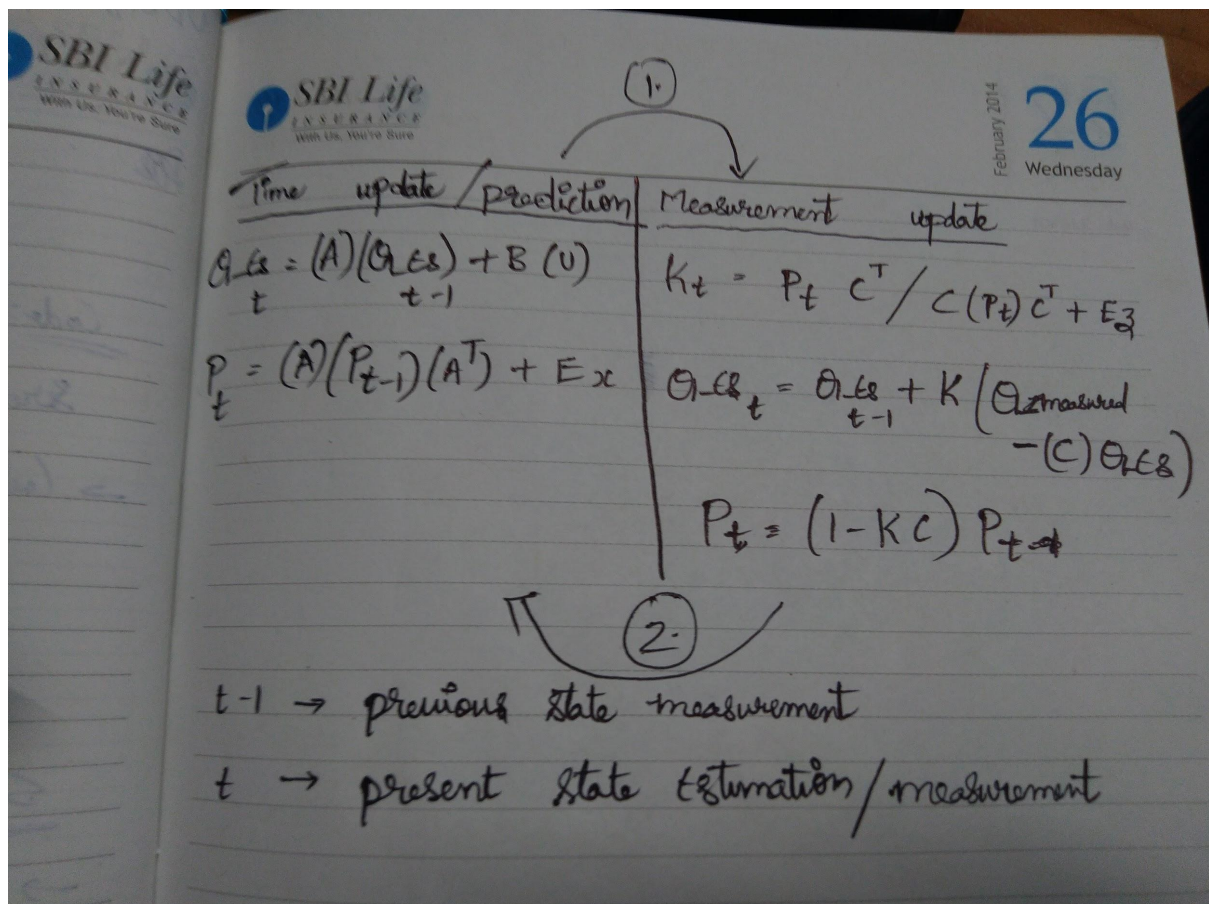 SBI Life
INSURANCE
With Us, You're Sure
SBI Life
INSURANCE
With Us, You're Sure
February 2014
26
Wednesday
1.
Time update / prediction
Q_es t = (A)(Q_es t-1) + B (U)
P t = (A)(P t-1)(A^T) + Ex
Measurement update
K t = P t C^T / C(P t) C^T + Ez
Q_es t = Q_es t-1 + K (Q_measured
-(C) Q_es)
P t = (1-KC) P t
2.
t-1 → previous state measurement
t → present state Estimation / measurement